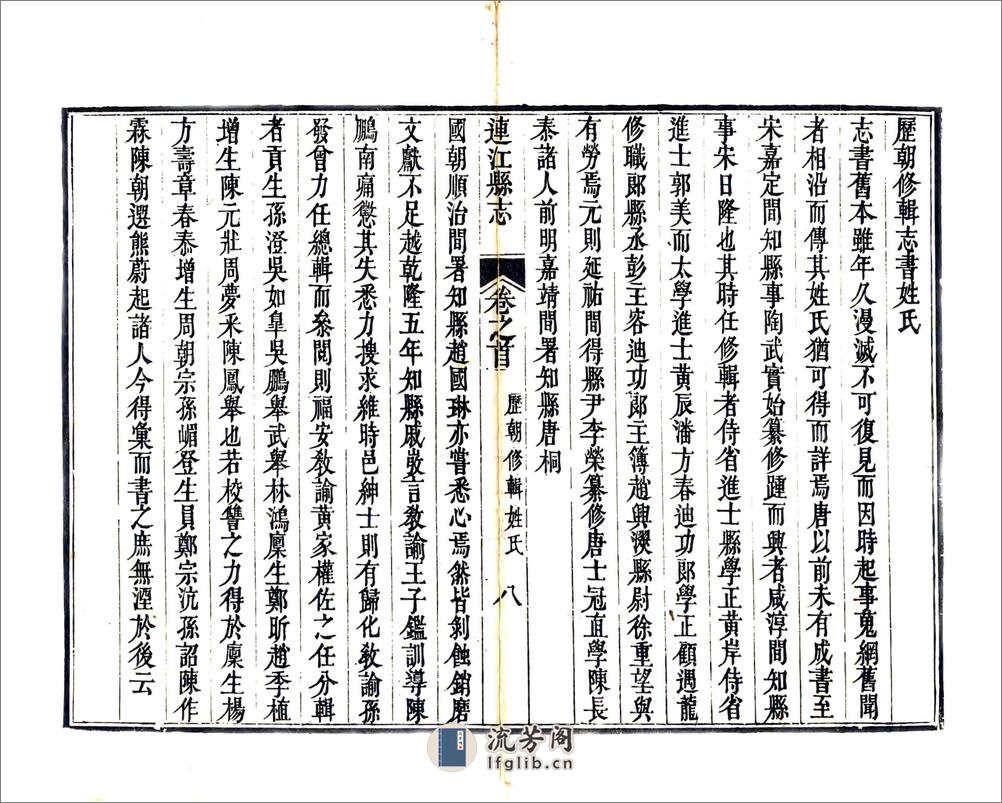 歷朝修輯志書姓氏
志書舊本雖年久漫滅不可復見而因時起事蒐網舊聞
者相沿而傳其姓氏猶可得而詳焉唐以前未有成書至
宋嘉定間知縣事陶武實始纂修踵而興者咸淳間知縣
事宋日隆也其時任修輯者侍省進士縣學正黃岸侍省
進士郭美而太學進士黃辰潘方春迪功郞學正顧遇龍
修職郞縣丞彭王容迪功郞主簿趙與澲縣尉徐重望與
有勞焉元則延祐間得縣尹李榮纂修唐士冠直學陳長
泰諸人前明嘉靖間署知縣唐桐
連江縣志
卷之首
歷朝修輯姓氏
八
國朝順治間署知縣趙國琳亦嘗悉心焉然皆剝蝕銷磨
文獻不足越乾隆五年知縣戚弢言敎諭王子鑑訓導陳
鵬南痛懲其失悉力搜求維時邑紳士則有歸化敎諭孫
發曾力任總輯而叅閱則福安敎諭黃家權佐之任分輯
者貢生孫澄吳如臯吳鵬舉武舉林鴻廩生鄭昕趙季植
增生陳元壯周夢釆陳鳳舉也若校讐之力得於廩生楊
方壽章春泰增生周朝宗孫嵋登生員鄭宗沆孫詔陳作
霖陳朝選熊蔚起諸人今得彙而書之庶無湮於後云
流芳阁
lfglib.cn